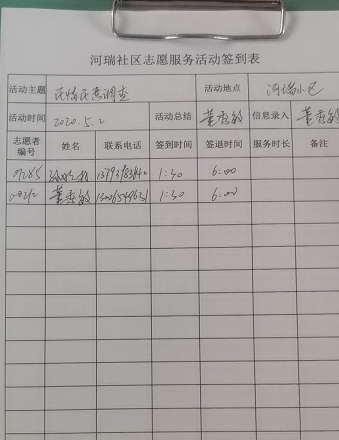 河瑞社区志愿服务活动签到表
活动主题 民情民意调查 活动地点 河瑞小区
活动时间 2020.5.2 活动总结 董秀敏 信息录入 董秀敏
志愿者编号 姓名 联系电话 签到时间 签退时间 服务时长 备注
1:30 6:00
董秀敏 1:30 6:00